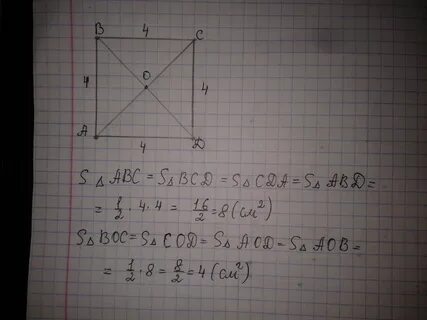 B 4 C
4 O 4
A 4 D
S△ABC = S△BCD = S△CDA = S△ABD =
= 1/2 · 4 · 4 = 16/2 = 8 (см²)
S△BOC = S△COD = S△AOD = S△AOB =
= 1/2 · 8 = 8/2 = 4 (см²)